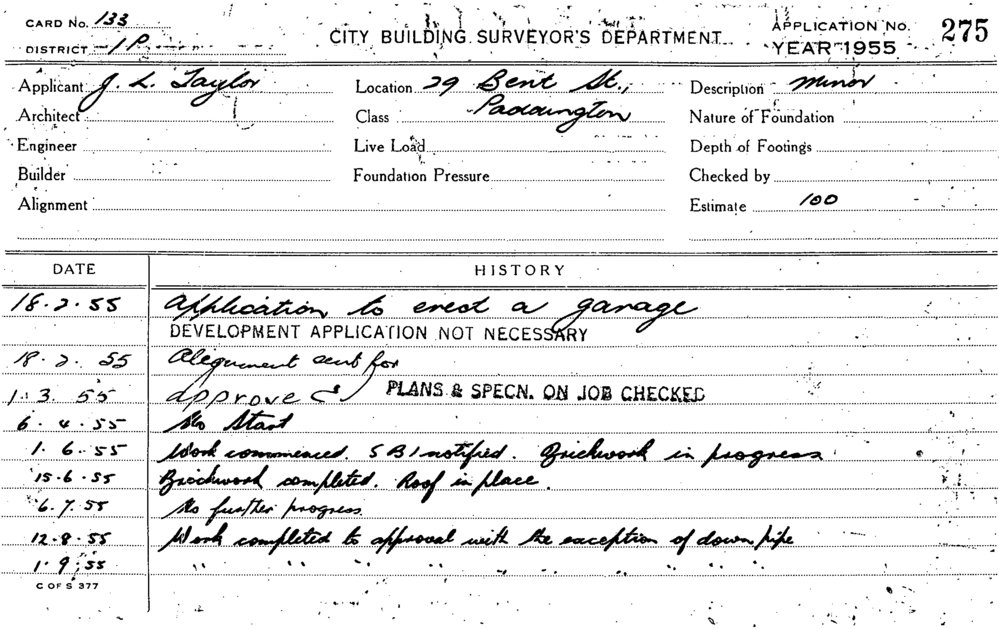 CARD No. 133
CITY BUILDING SURVEYOR'S DEPARTMENT
APPLICATION No. 275
DISTRICT
YEAR 1955
Applicant J. L. Taylor Location 29 Bent St., Description Minor
Architect Class Paddington Nature of Foundation
Engineer Live Load Depth of Footings
Builder Foundation Pressure Checked by
Alignment Estimate 100
DATE HISTORY
18.2.55 Application to erect a garage
DEVELOPMENT APPLICATION NOT NECESSARY
18.2.55 Alignment sent for
1.3.55 approved PLANS & SPECN. ON JOB CHECKED
6.4.55 No Start
1.6.55 Work commenced. SBI notified. Brickwork in progress
15.6.55 Brickwork completed. Roof in place.
6.7.55 No further progress.
12.8.55 Work completed to approval with the exception of down pipe
1.9.55 " " " " " " " " "
C OF S 377